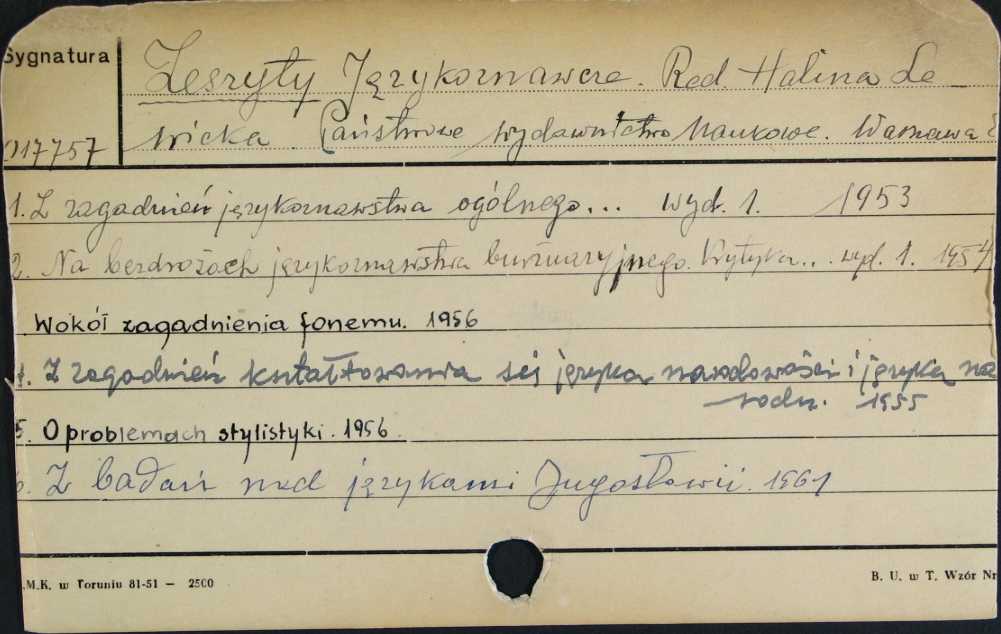 Sygnatura
Zeszyty Językoznawcze. Red. Halina Le
wicka. Państwowe Wydawnictwo Naukowe. Warszawa
017757
1. Z zagadnień językoznawstwa ogólnego... wyd. 1. 1953
2. Na bezdrożach językoznawstwa burżuazyjnego. Krytyka... wyd. 1. 1954
Wokół zagadnienia fonemu. 1956
4. Z zagadnień kształtowania się języka narodowości i języka na
rodu. 1955
5. O problemach stylistyki. 1956.
6. Z badań nad językami Jugosławii. 1961
.M.K. w Toruniu 81-51 — 2500
B. U. w T. Wzór Nr